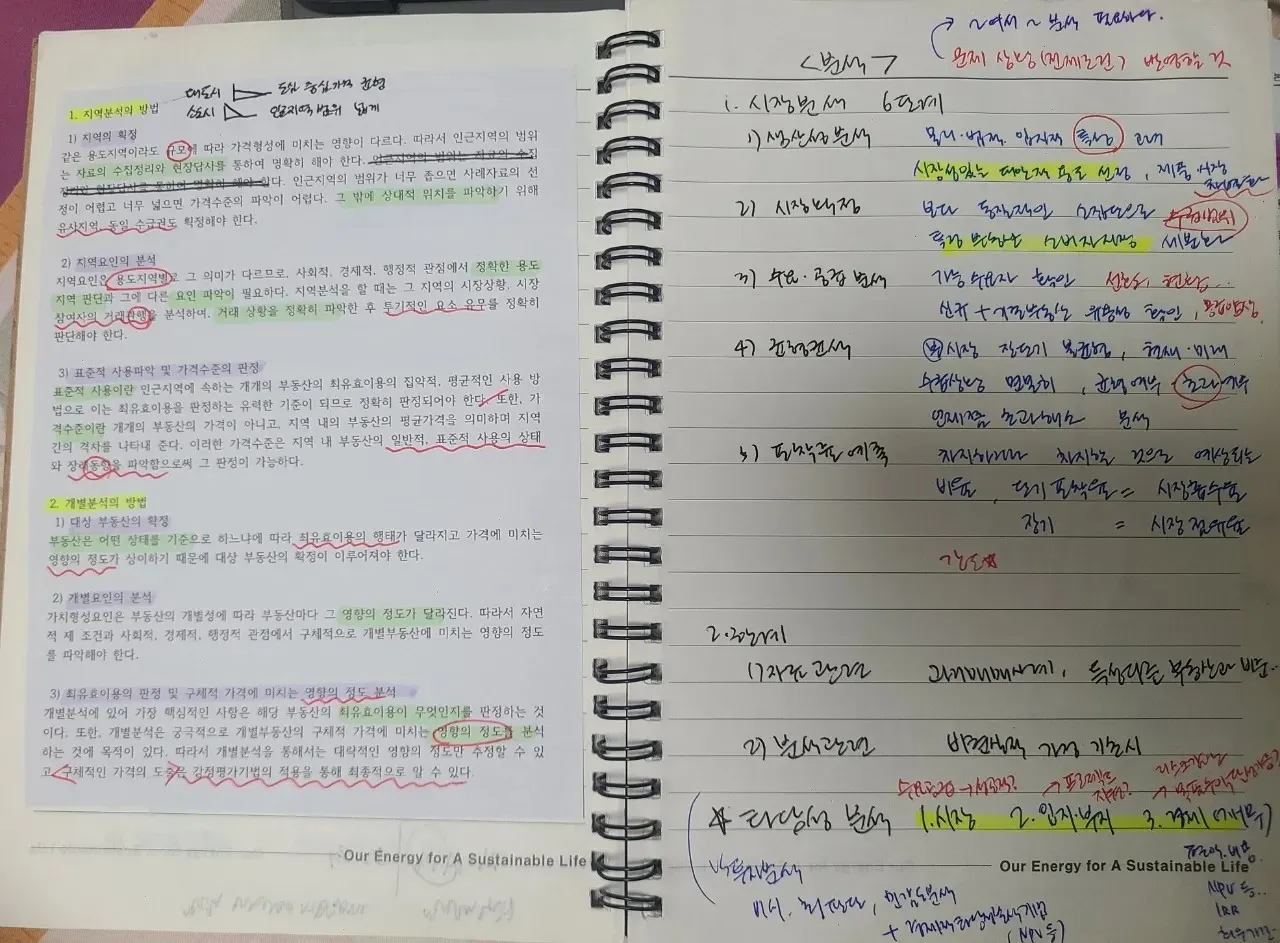 대도시 도심 중심가지 균형
소도시 인근지역 범위 넓게
1. 지역분석의 방법
1) 지역의 획정
같은 용도지역이라도 규모에 따라 가격형성에 미치는 영향이 다르다. 따라서 인근지역의 범위
는 자료의 수집정리와 현장답사를 통하여 명확히 해야 한다. 인근지역의 범위는 자료의 수집
정리와 현장답사를 통하여 명확히 해야 한다. 인근지역의 범위가 너무 좁으면 사례자료의 선
정이 어렵고 너무 넓으면 가격수준의 파악이 어렵다. 그 밖에 상대적 위치를 파악하기 위해
유사지역, 동일 수급권도 획정해야 한다.
2) 지역요인의 분석
지역요인은 용도지역별로 그 의미가 다르므로, 사회적, 경제적, 행정적 관점에서 정확한 용도
지역 판단과 그에 다른 요인 파악이 필요하다. 지역분석을 할 때는 그 지역의 시장상황, 시장
참여자의 거래관행을 분석하여, 거래 상황을 정확히 파악한 후 투기적인 요소 유무를 정확히
판단해야 한다.
3) 표준적 사용파악 및 가격수준의 판정
표준적 사용이란 인근지역에 속하는 개개의 부동산의 최유효이용의 집약적, 평균적인 사용 방
법으로 이는 최유효이용을 판정하는 유력한 기준이 되므로 정확히 판정되어야 한다. 또한, 가
격수준이란 개개의 부동산의 가격이 아니고, 지역 내의 부동산의 평균가격을 의미하며 지역
간의 격차를 나타내 준다. 이러한 가격수준은 지역 내 부동산의 일반적, 표준적 사용의 상태
와 장래동향을 파악함으로써 그 판정이 가능하다.
2. 개별분석의 방법
1) 대상 부동산의 확정
부동산은 어떤 상태를 기준으로 하느냐에 따라 최유효이용의 행태가 달라지고 가격에 미치는
영향의 정도가 상이하기 때문에 대상 부동산의 확정이 이루어져야 한다.
2) 개별요인의 분석
가치형성요인은 부동산의 개별성에 따라 부동산마다 그 영향의 정도가 달라진다. 따라서 자연
적 제 조건과 사회적, 경제적, 행정적 관점에서 구체적으로 개별부동산에 미치는 영향의 정도
를 파악해야 한다.
3) 최유효이용의 판정 및 구체적 가격에 미치는 영향의 정도 분석
개별분석에 있어 가장 핵심적인 사항은 해당 부동산의 최유효이용이 무엇인지를 판정하는 것
이다. 또한, 개별분석은 궁극적으로 개별부동산의 구체적 가격에 미치는 영향의 정도를 분석
하는 것에 목적이 있다. 따라서 개별분석을 통해서는 대략적인 영향의 정도만 추정할 수 있
고 구체적인 가격의 도출은 감정평가기법의 적용을 통해 최종적으로 알 수 있다.
Our Energy for A Sustainable Life
~여서 ~ 분석 필요하다.
<분석> 문제 상황(전제조건) 반영할 것
i. 시장분석 6단계
1) 생산성분석 물리·법적·입지적 특성
시장성있는 대안적 용도 선정, 제품·시장
2) 시장획정 보다 동질적인
특정 부합하는 소비자시장 세분화
3) 수요·공급 분석 가능 수요자 확인 선호도,
신규 + 기존부동산 유용성 확인,
4) 균형분석 시장 장단기 불균형, 현재·미래
수급상황 면밀히, 균형여부 초과여부
언제쯤 초과해소 분석
5) 포착률 예측 차지하거나 차지할 것으로 예상되는
비율, 단기 포착률 = 시장흡수율
장기 = 시장점유율
강도
2. 3단계
1) 자료관련 과거매매사례, 특성다른 부동산과 비교..
2) 분석관련 비현실적 가정 기초시
☆ 타당성 분석 1.시장 2.입지·부지 3.경제
Our Energy for A Sustainable Life
VS 투자분석
민감도분석 NPV 등..
+ 경제적타당성분석기법 IRR
(NPV 등) 회수기간